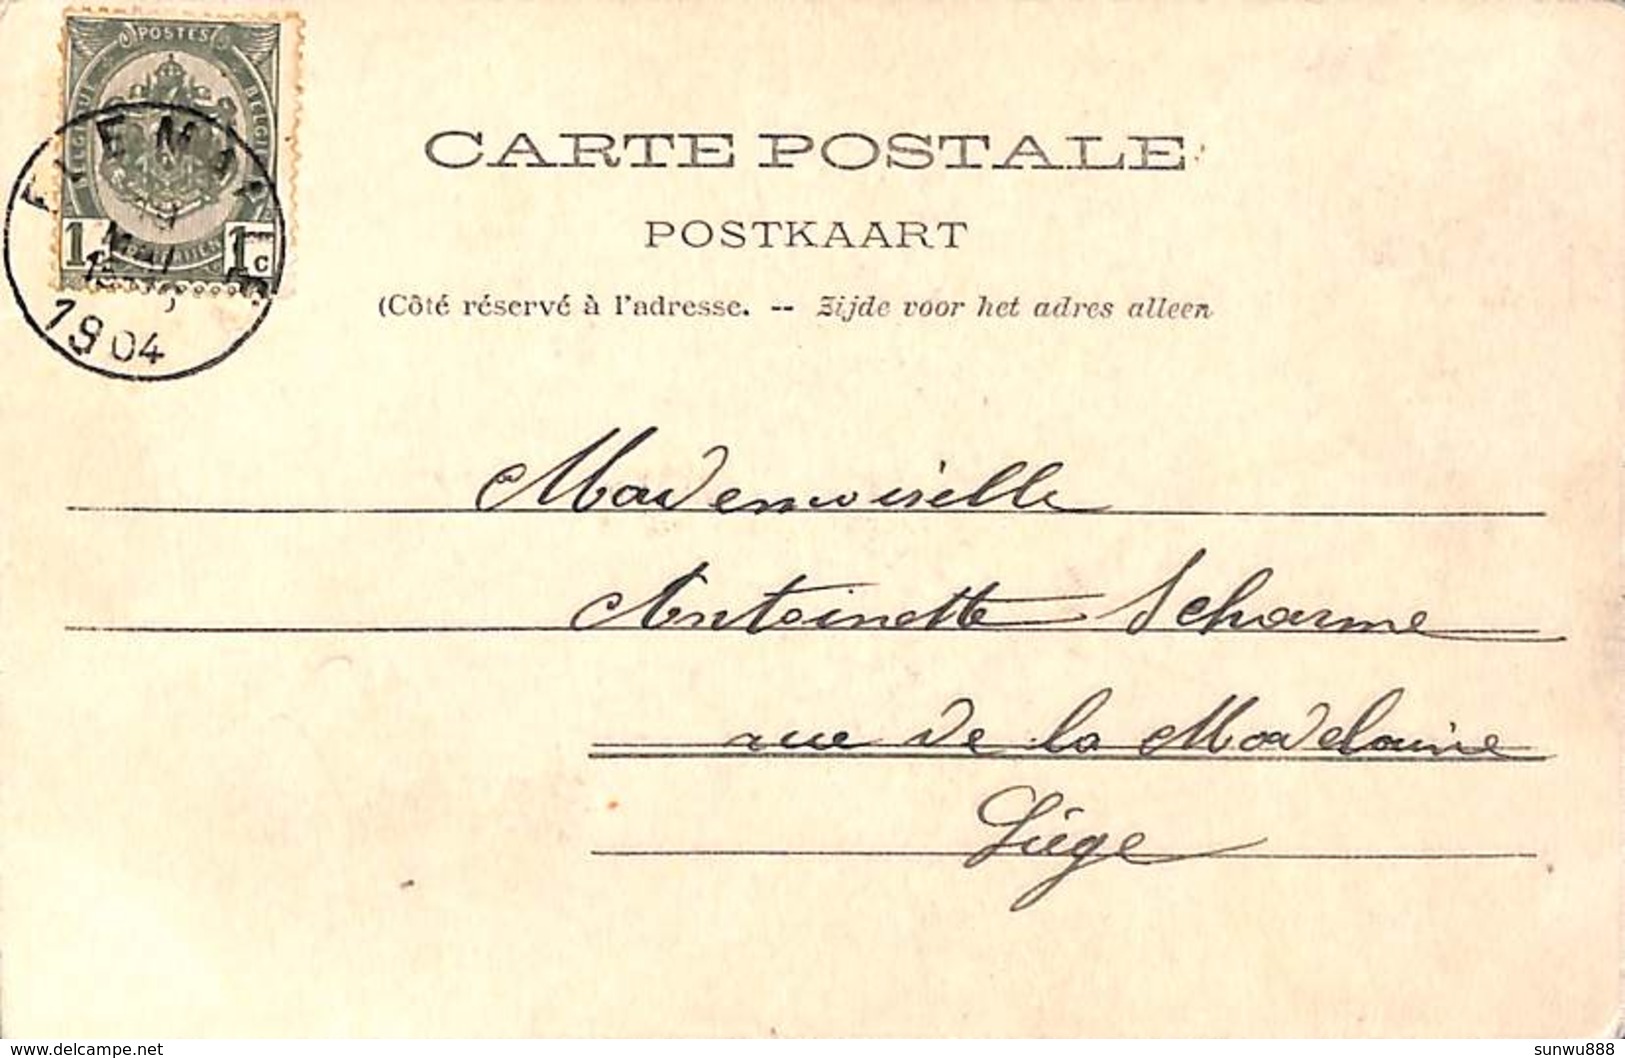 POSTES
BELGIQUE BELGIË
1c 1c
FLEMALLE
MAI
1904
CARTE POSTALE
POSTKAART
(Côté réservé à l'adresse. -- Zijde voor het adres alleen
Mademoiselle
Antoinette Scharme
rue de la Madelaine
Liége
www.delcampe.net
sunwu888